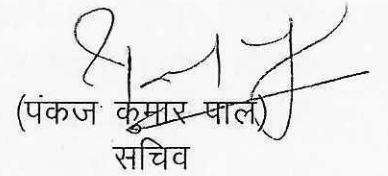 (पंकज कुमार पाल)
सचिव